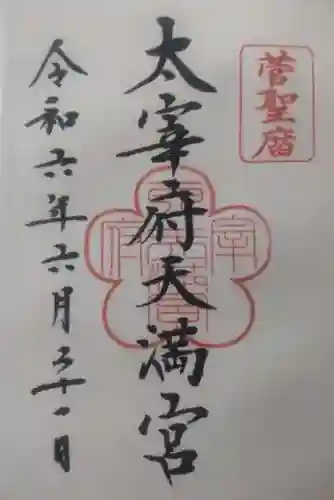 菅聖庿
太宰府天満宮
令和六年六月二十一日